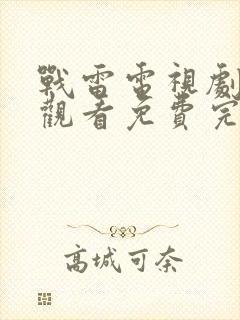 戰雷電視劇
觀看免費完
高城可奈